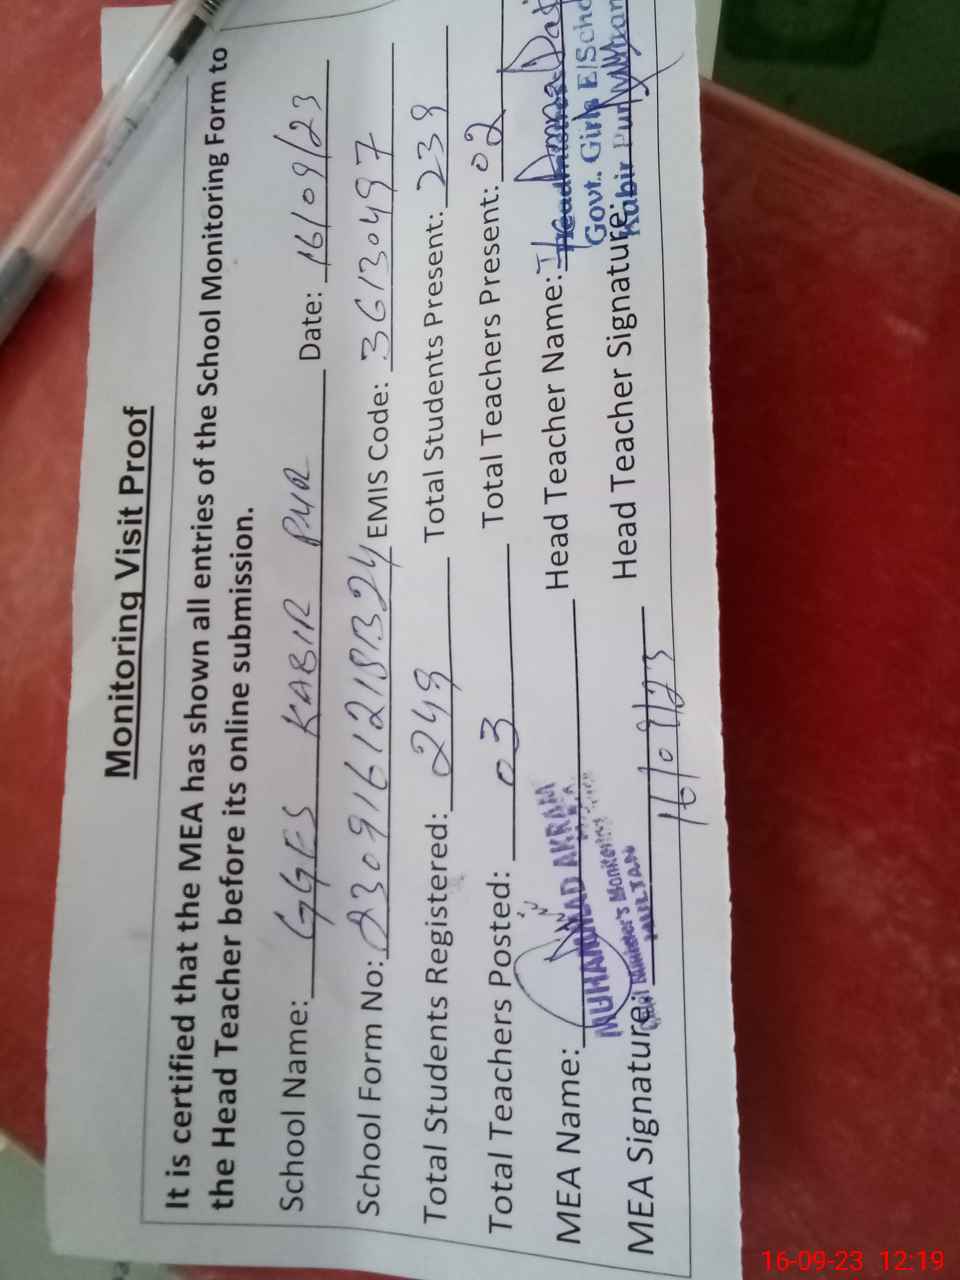 Monitoring Visit Proof
It is certified that the MEA has shown all entries of the School Monitoring Form to
the Head Teacher before its online submission.
School Name: GGES KABIR PUR Date: 16/09/23
School Form No: 23091612181324 EMIS Code: 36130497
Total Students Registered: 249 Total Students Present: 239
Total Teachers Posted: 03 Total Teachers Present: 02
MEA Name: Head Teacher Name: Amna
MUHAMMAD AKRAM
Chief Minister's Monitoring
MULTAN
Govt. Girls E/Scho
Kabir Pur
MEA Signature: Head Teacher Signature:
16/09/23
16-09-23 12:19